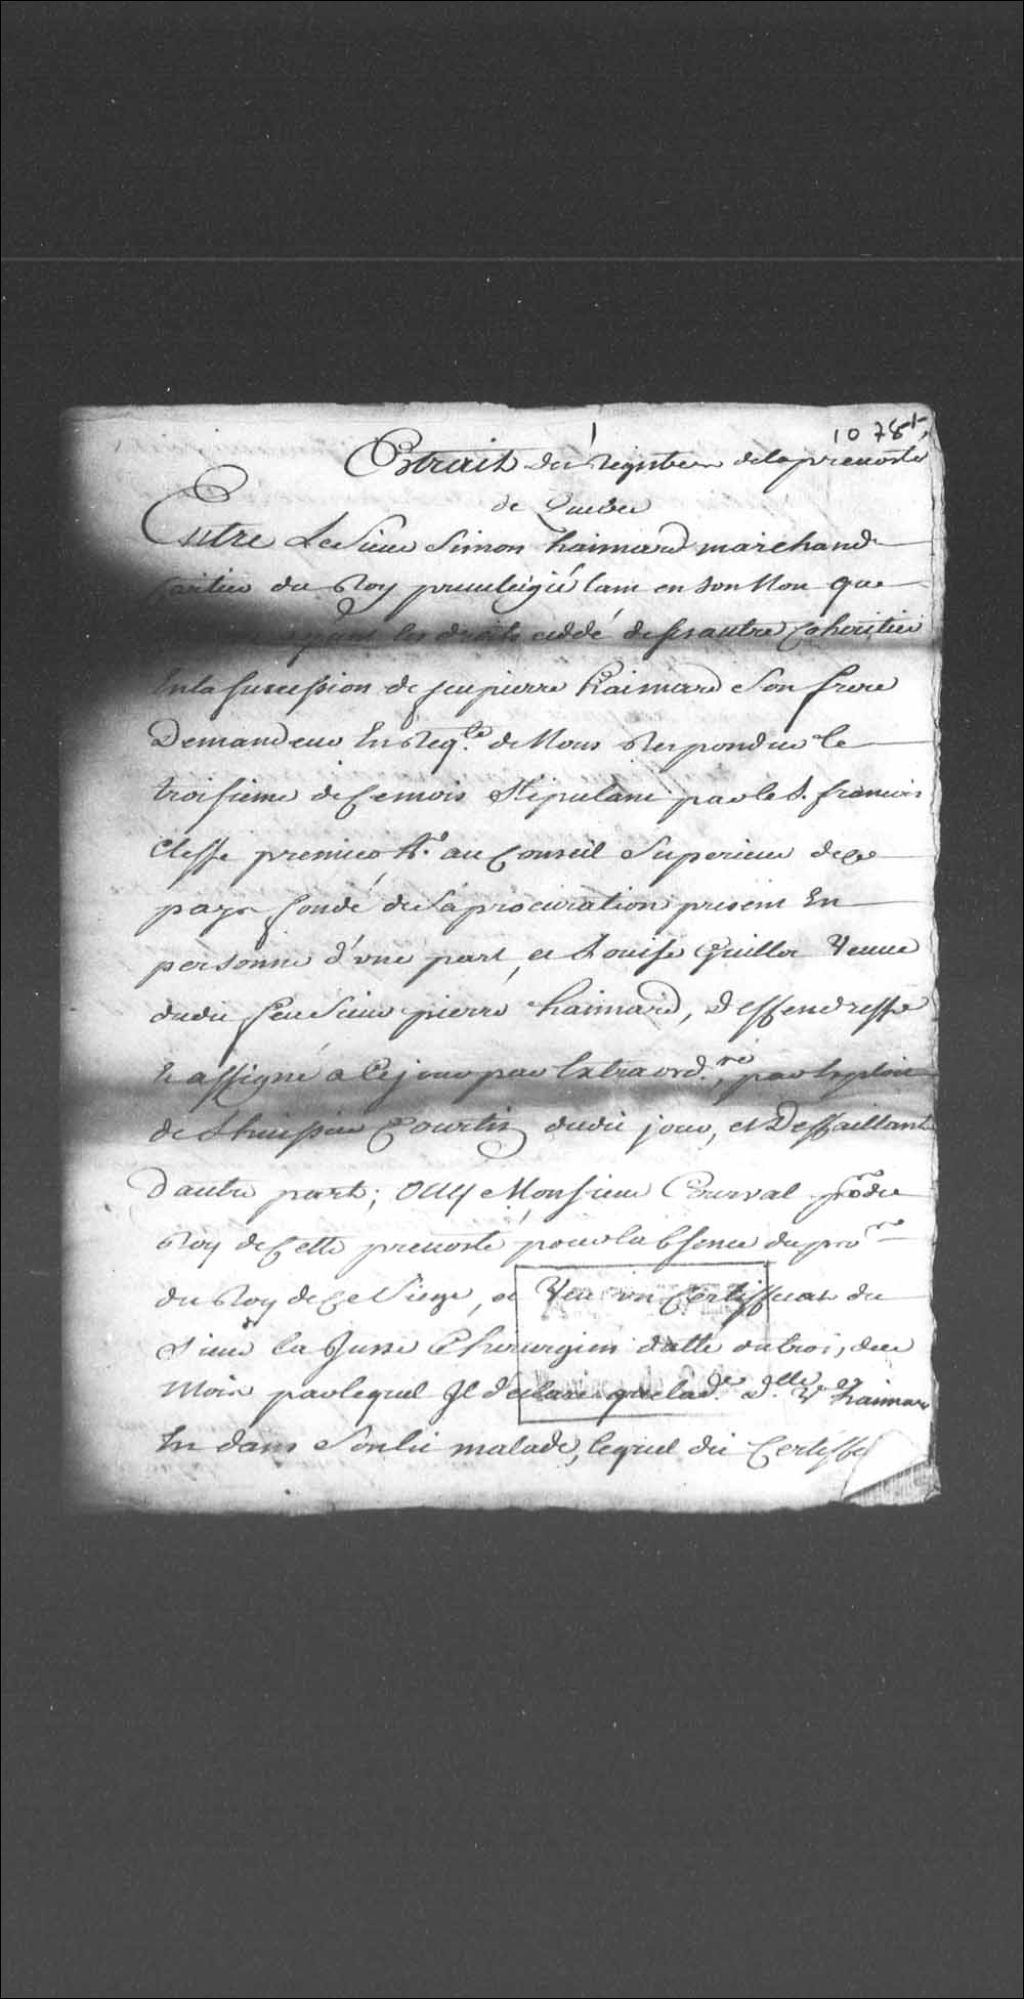 1078
Extrait des registres de la prevosté
de Quebec
Entre Le Sieur Simon haimard marchand
du Roy privilegié tant en son Nom que
les droits ceddé de ses autres Coheritiers
En la succession de feu pierre haimard Son frere
Demandeur En Req.te de Nous Respondue le
troisieme de Ce mois Stipulant par le S. francois
Clesse premier h.r au Conseil Superieur de ce
pays fondé de Sa procuration present En
personne d'une part, et Louise Guillot Veuve
dudit feu Sieur pierre haimard, Deffendresse
Et assigné a Ce jour par Extraord.re, par Exploit
de Lhuissier Courtin dudit jour, et Deffaillant
Dautre part; Ouy Monsieur Courval du
Roy de Cette prevosté pour labsence du pro.r
du Roy de Ce Siege, et Veu un Certifficat du
Sieur la Jusse Chirurgien datté du trois, du
Mois par lequel Il declare que lad.e D.lle V.e haimard
Est dans Son lit malade, lequel dit Certiffi